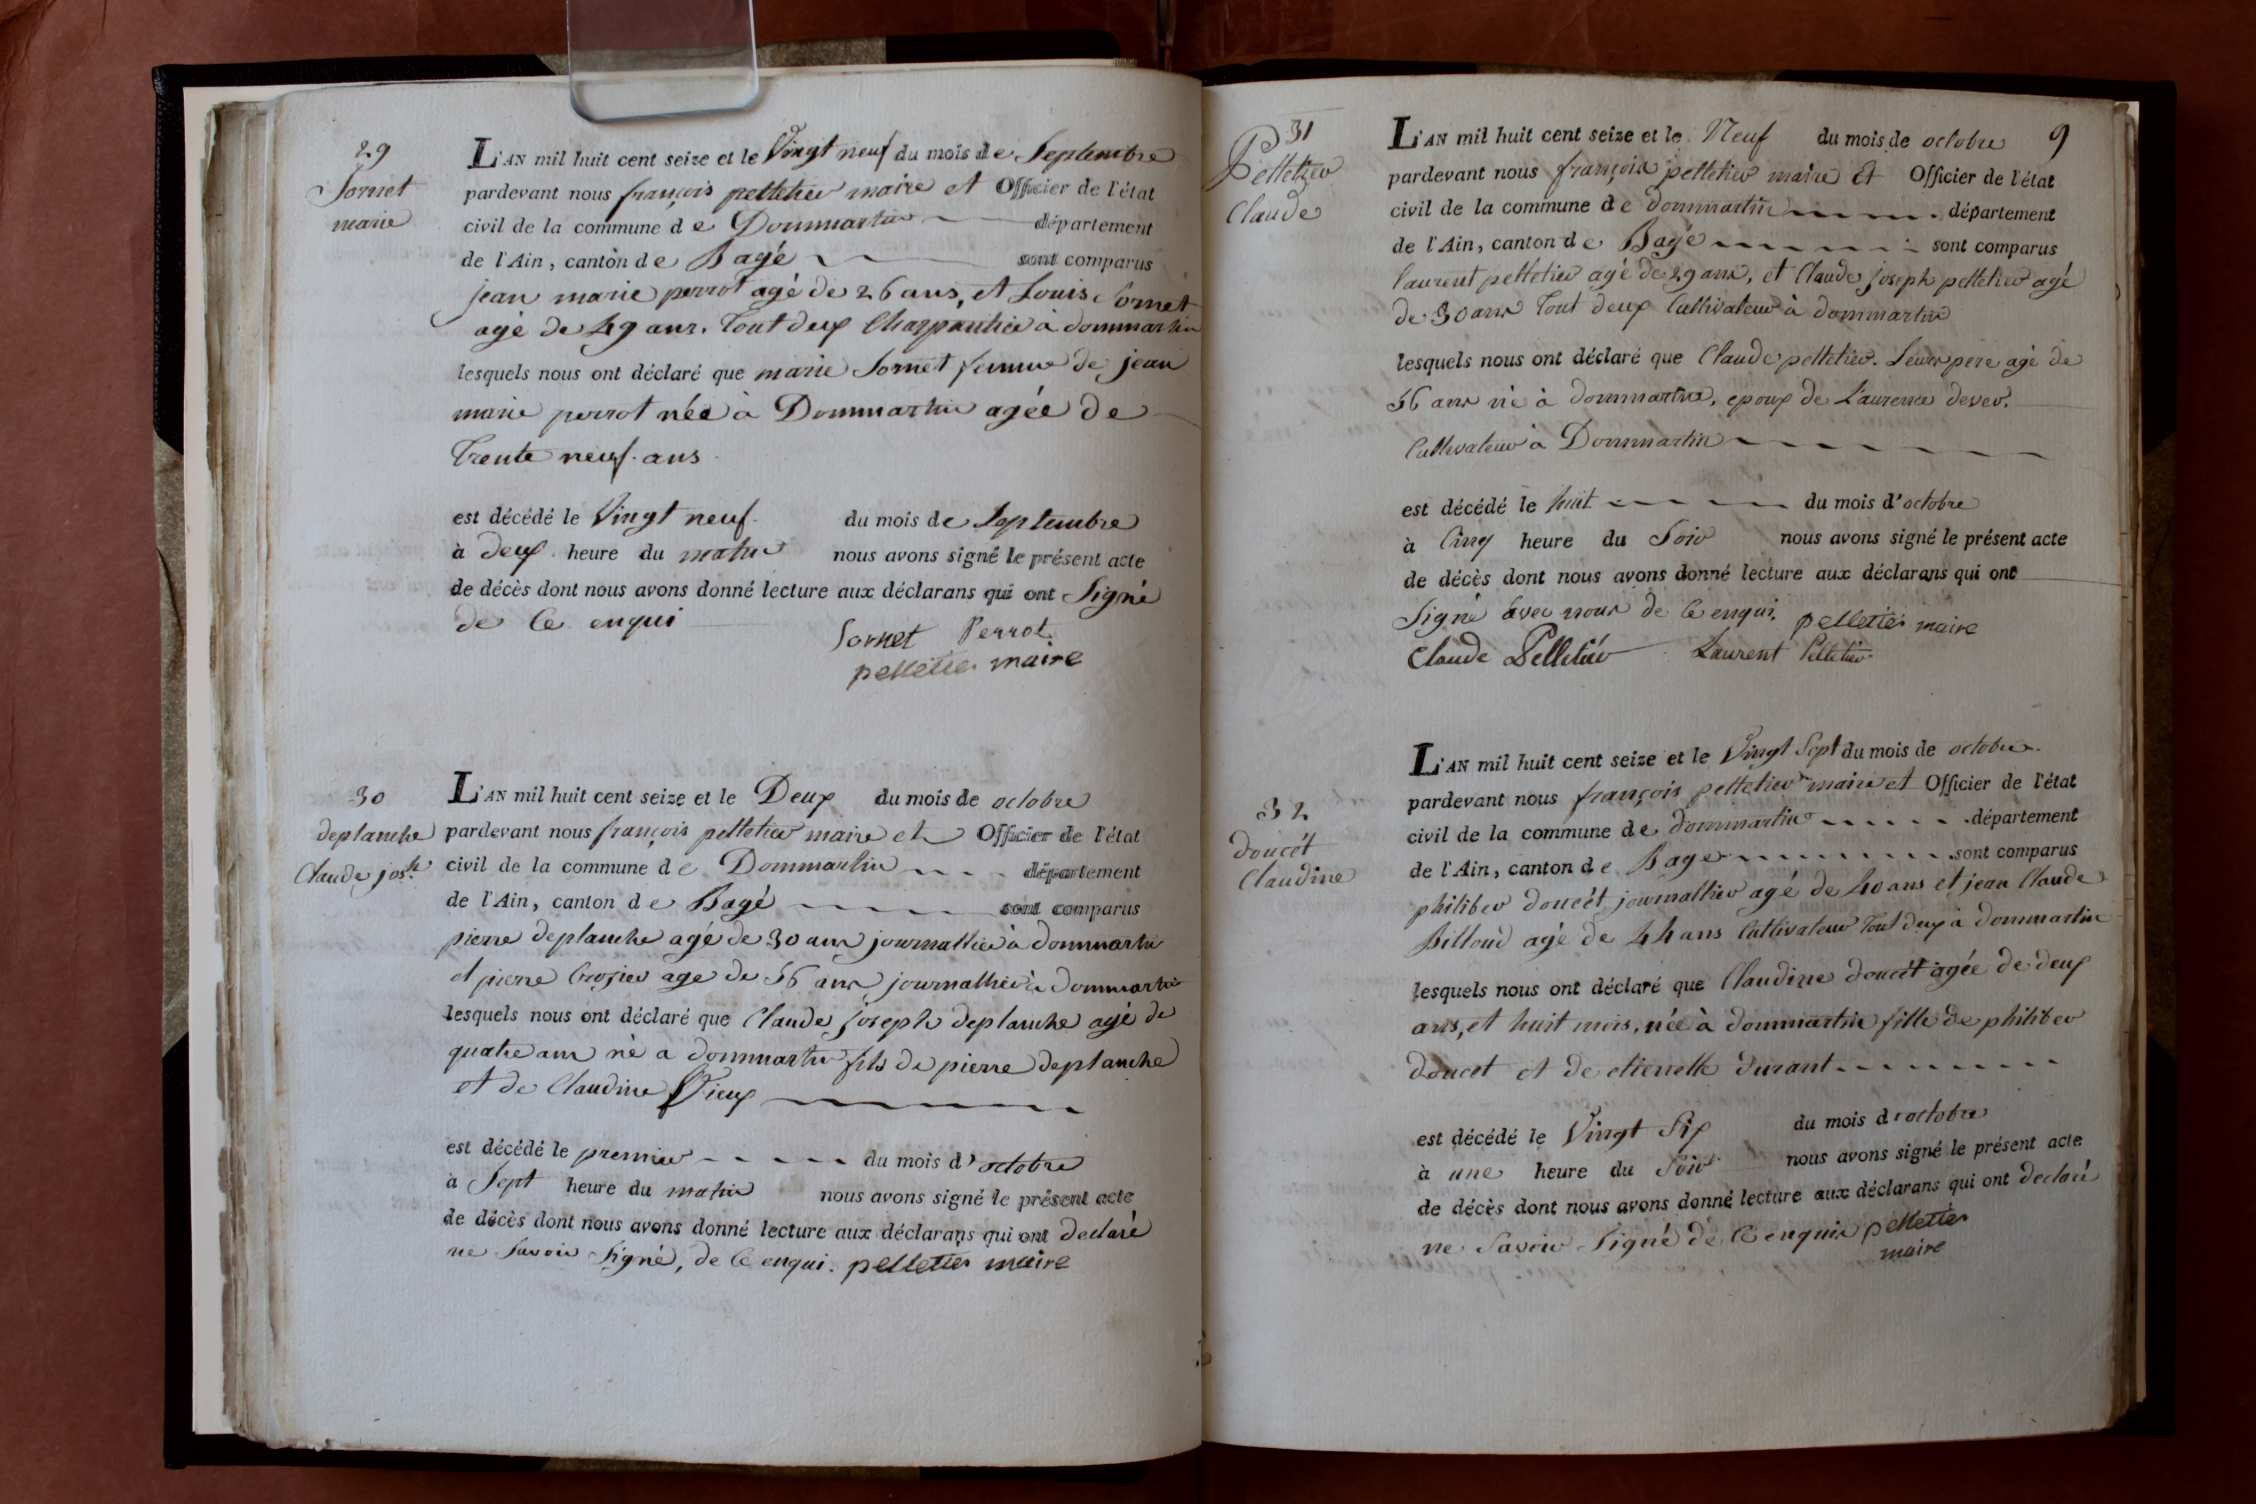 29
Sornet
marie
L'AN mil huit cent seize et le Vingt neuf du mois de Septembre
pardevant nous françois pelletier maire et Officier de l'état
civil de la commune de Dommartin département
de l'Ain, canton de Bagé sont comparus
jean marie perrot agé de 26 ans, et Louis Sornet
agé de 49 ans. tout deux Charpentier à dommartin
lesquels nous ont déclaré que marie Sornet femme de jean
marie perrot née à Dommartin agée de
trente neuf ans
est décédé le Vingt neuf du mois de Septembre
à deux heure du matin nous avons signé le présent acte
de décès dont nous avons donné lecture aux déclarans qui ont Signé
de Ce enqui
Sornet Perrot
pelletier maire
30
deplanche
Claude josh
L'AN mil huit cent seize et le Deux du mois de octobre
pardevant nous françois pelletier maire et Officier de l'état
civil de la commune de Dommartin département
de l'Ain, canton de Bagé sont comparus
pierre deplanche agé de 30 ans journallier à dommartin
et pierre Crozier age de 56 ans journallier à dommartin
lesquels nous ont déclaré que Claude joseph deplanche agé de
quatre ans né a dommartin fils de pierre deplanche
et de Claudine Vieux
est décédé le premier du mois d'octobre
à Sept heure du matin nous avons signé le présent acte
de décès dont nous avons donné lecture aux déclarans qui ont declaré
ne Savoir Signé, de Ce enqui. pelletier maire
9
31
Pelletier
Claude
L'AN mil huit cent seize et le Neuf du mois de octobre
pardevant nous françois pelletier maire Et Officier de l'état
civil de la commune de dommartin département
de l'Ain, canton de Bagé sont comparus
laurent pelletier agé de 29 ans, et Claude joseph pelletier agé
de 30 ans tout deux Cultivateur à dommartin
lesquels nous ont déclaré que Claude pelletier. Leurs pere agé de
56 ans né à dommartin, epoux de Laurence
Cultivateur à Dommartin
est décédé le huit du mois d'octobre
à Cinq heure du Soir nous avons signé le présent acte
de décès dont nous avons donné lecture aux déclarans qui ont
Signé avec nous de Ce enqui. pelletier maire
Claude Pelletier Laurent Pelletier
32
doucét
Claudine
L'AN mil huit cent seize et le Vingt Sept du mois de octobre.
pardevant nous françois pelletier maire et Officier de l'état
civil de la commune de dommartin département
de l'Ain, canton de Bage sont comparus
philiber doucét journallier agé de 40 ans et jean Claude
Billoud agé de 44 ans Cultivateur tout deux à dommartin
lesquels nous ont déclaré que Claudine doucét agée de deux
ans, et huit mois, née à dommartin fille de philiber
doucet et de etienette durant
est décédé le Vingt Six du mois d'octobre
à une heure du Soir nous avons signé le présent acte
de décès dont nous avons donné lecture aux déclarans qui ont declaré
ne Savoir Signé de Ce enquis pelletier
maire